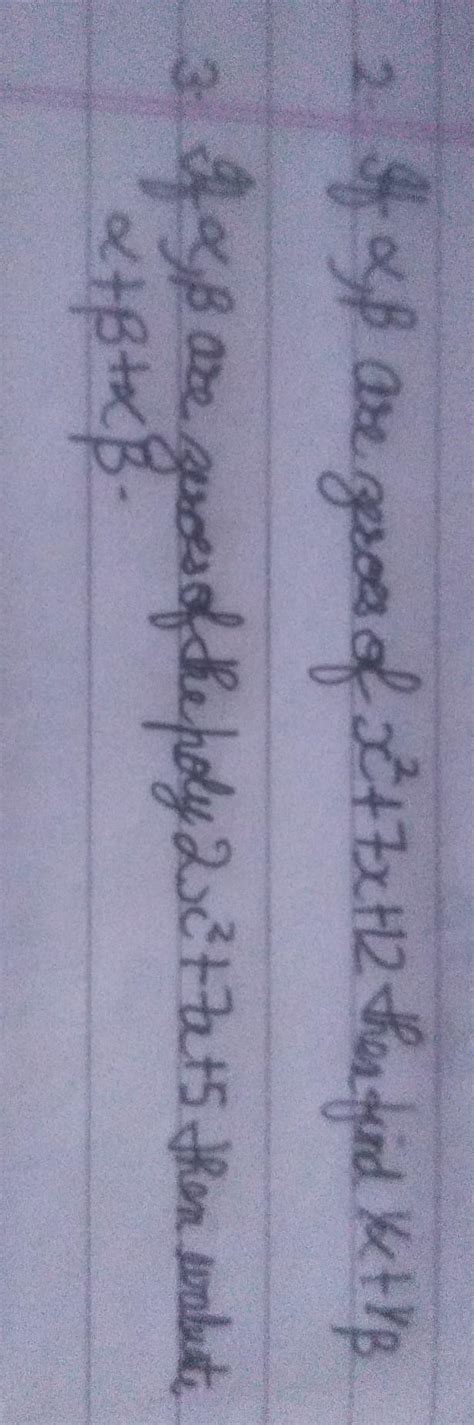 2. If α, β are zeroes of x²+7x+12 then find 1/α+1/β
3. If α, β are zeroes of the poly 2x²+7x+5 then
α+β+αβ.